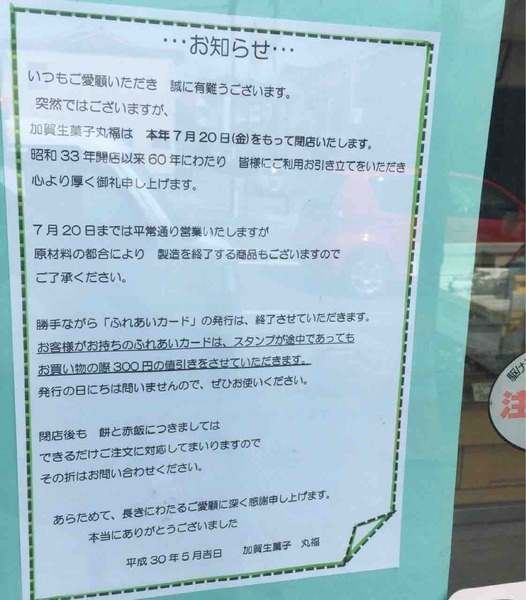 …お知らせ…
いつもご愛顧いただき 誠に有難うございます。
突然ではございますが、
加賀生菓子丸福は 本年7月20日(金)をもって閉店いたします。
昭和33年開店以来60年にわたり 皆様にご利用お引き立てをいただき
心より厚く御礼申し上げます。
7月20日までは平常通り営業いたしますが
原材料の都合により 製造を終了する商品もございますので
ご了承ください。
勝手ながら「ふれあいカード」の発行は、終了させていただきます。
お客様がお持ちのふれあいカードは、スタンプが途中であっても
お買い物の際300円の値引きをさせていただきます。
発行の日にちは問いませんので、ぜひお使いください。
閉店後も 餅と赤飯につきましては
できるだけご注文に対応してまいりますので
その折はお問い合わせください。
あらためて、長きにわたるご愛顧に深く感謝申し上げます。
本当にありがとうございました
平成30年5月吉日 加賀生菓子 丸福
駆け
注